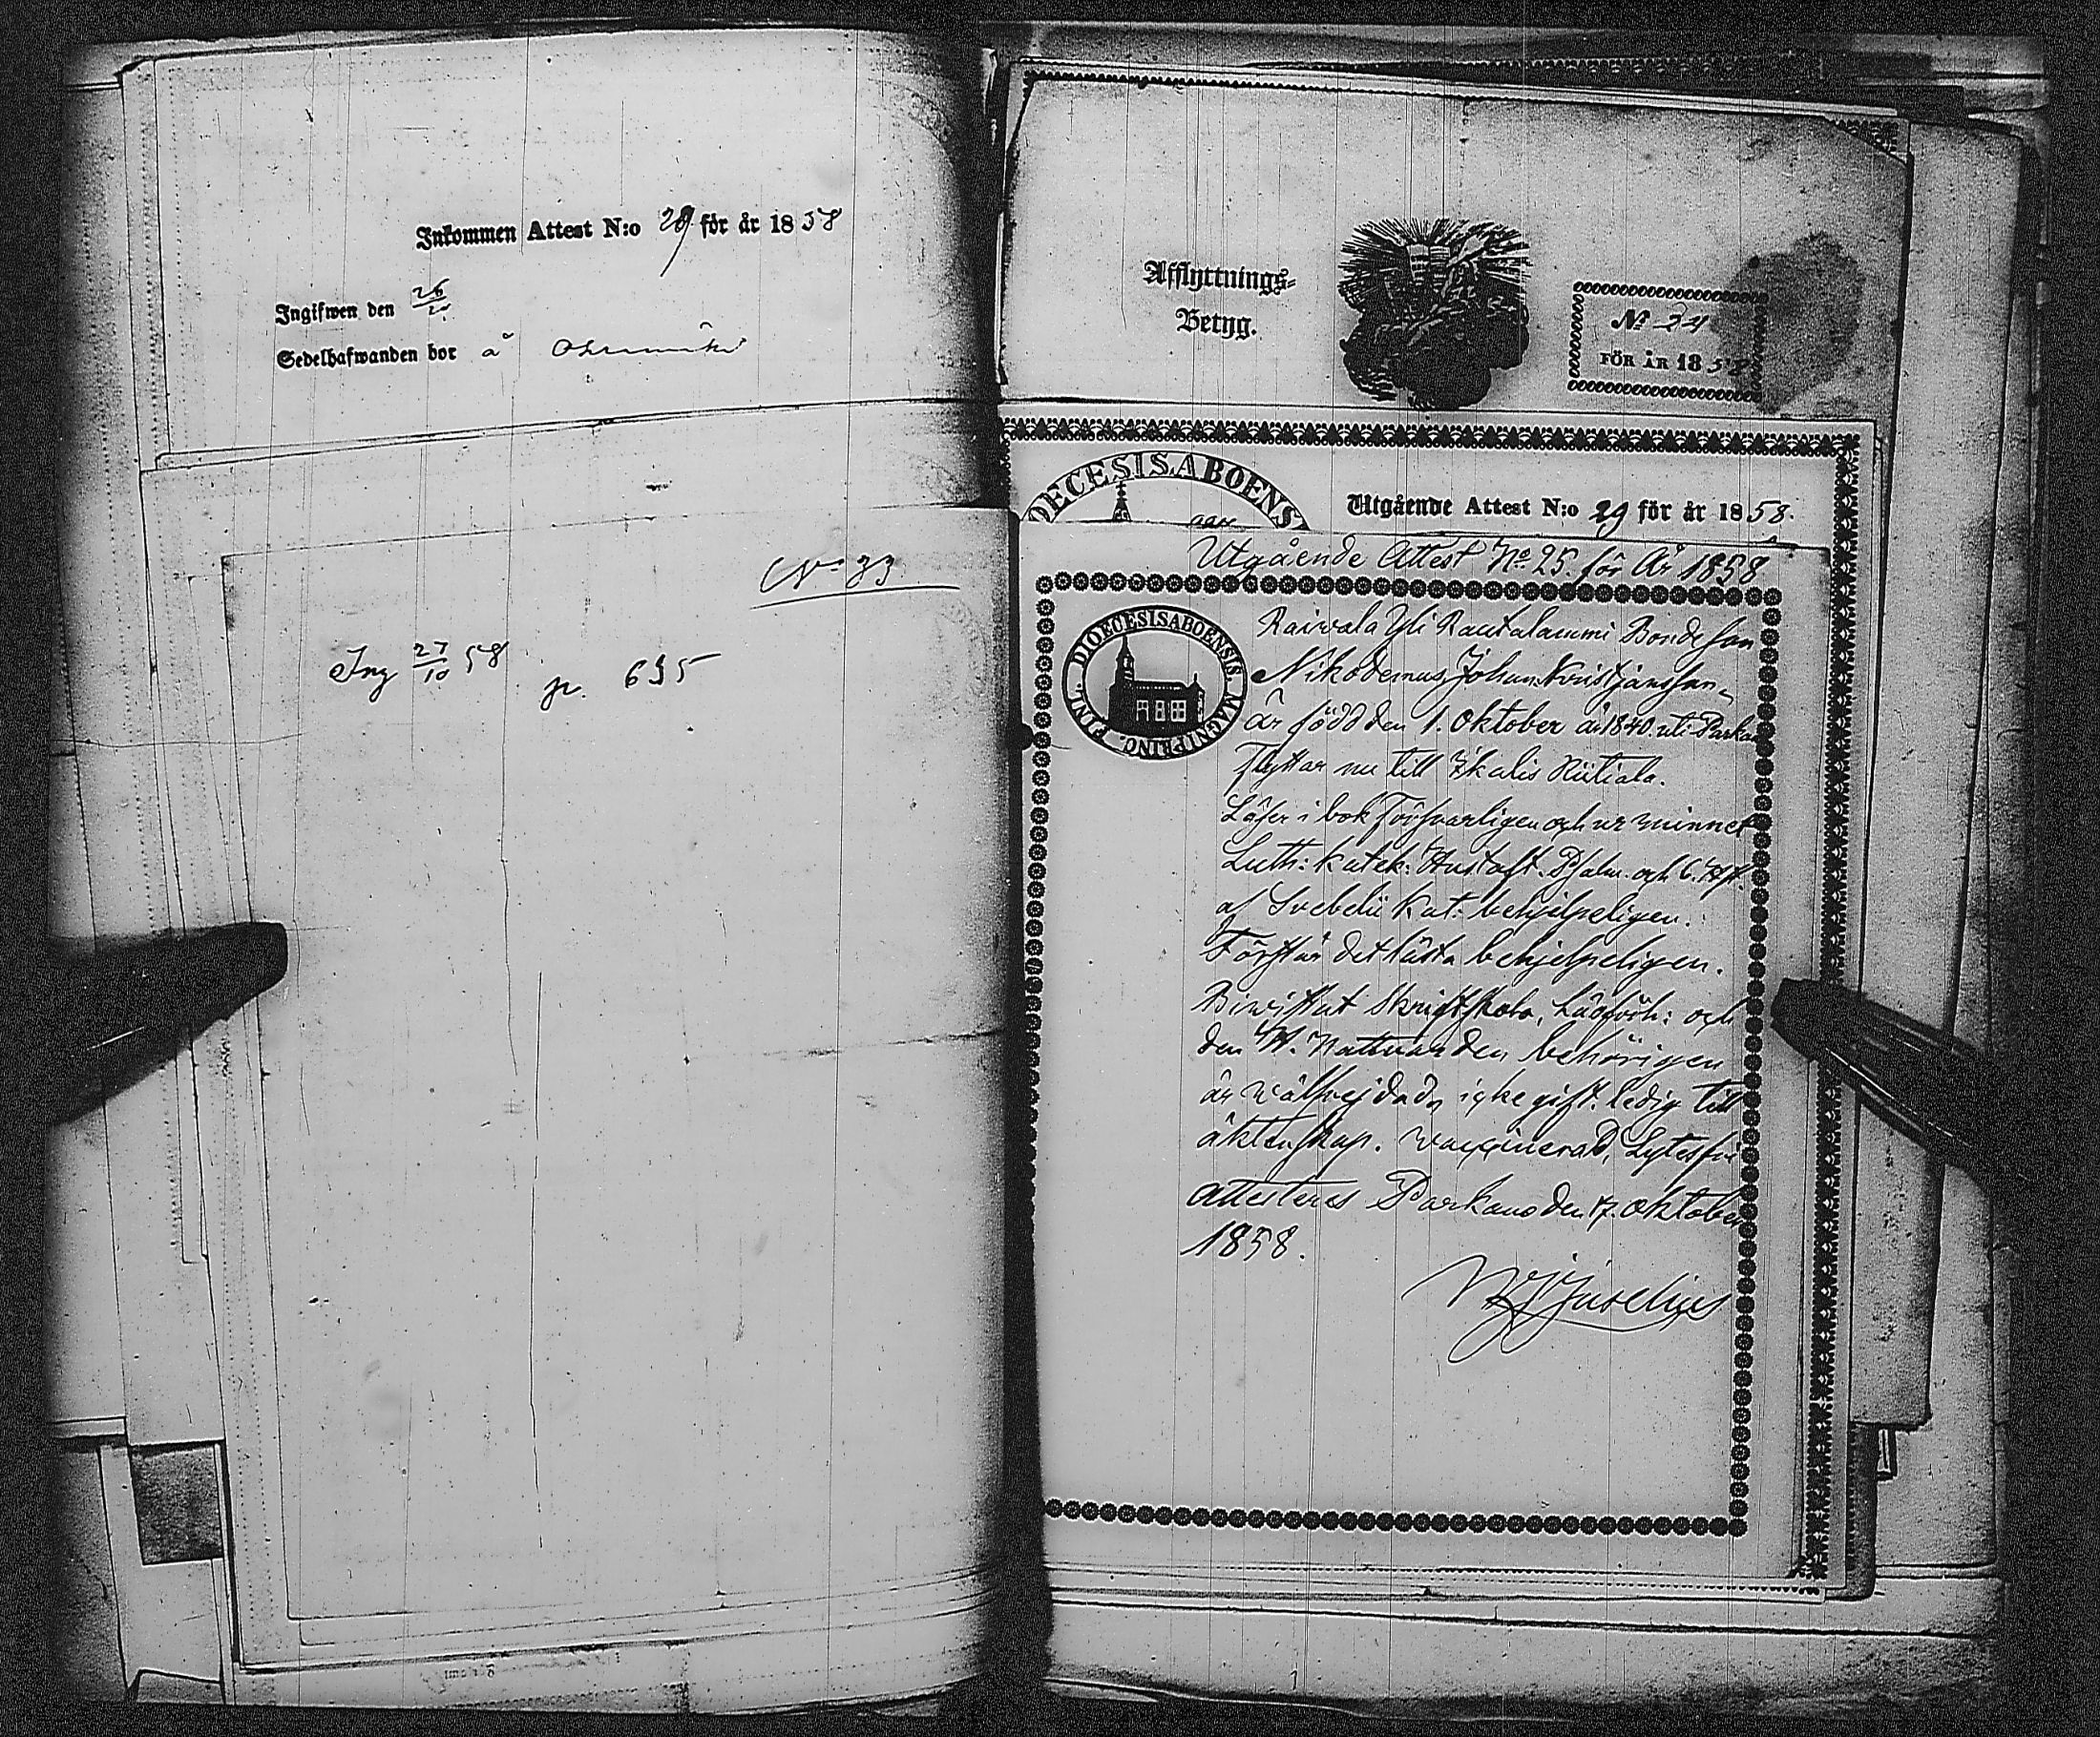 Inkommen Attest N:o 29 för år 1858
Ingifwen den 26/10
Sedelhafwanden bor å
No 33
Ing 27/10 58 p. 695
Afflyttnings-
Betyg.
No 24
FÖR ÅR 1858
DIOECESIS ABOENS
Utgående Attest N:o 29 för år 1858.
Utgående Attest No 25. för År 1858
DIOECESIS ABOENSIS. MAGNI PRINC. FINL.
Raivala Yli Rautalammi Bondeson
Nikodemus Johan Kristjansson
är född den 1. Oktober år 1840. uti Parkano
flyttar nu till Ikalis Riitiala.
Läser i bok försvarligen och ur minnet
Luth: katek: Hustafl. Psalm. och 6. H.st.
af Svebelii kat: behjelpeligen.
Förstår det lästa behjelpeligen.
Biwistat Skriftskola, Läseförh: och
den H. Nattvarden behörigen
är wälfrejdad, icke gift. ledig till
äktenskap. vaccinerad, Lytesfri
attesteras Parkano den 17. Oktober
1858.